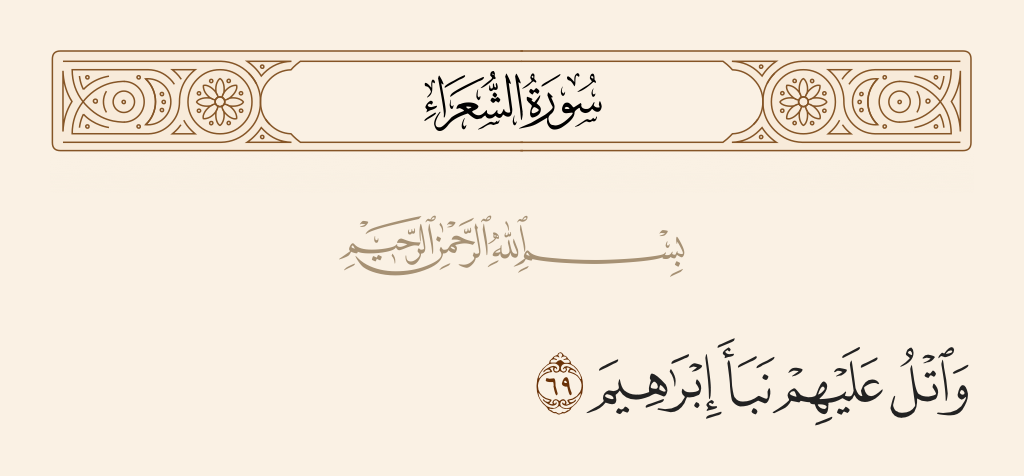 سُورَةُ الشُّعَرَاءِ
بِسْمِ ٱللَّهِ ٱلرَّحْمَٰنِ ٱلرَّحِيمِ
وَٱتْلُ عَلَيْهِمْ نَبَأَ إِبْرَٰهِيمَ ٦٩